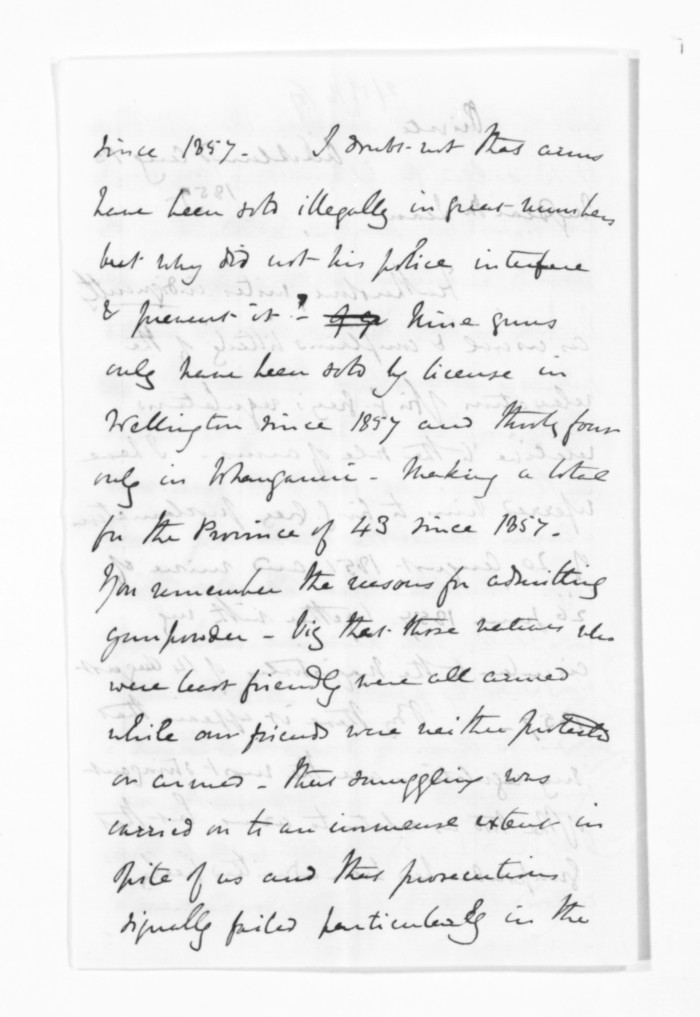 since 1857. I doubt not that arms
have been sold illegally in great numbers
but why did not his police interfere
& prevent it? - Nine guns
only have been sold by license in
Wellington since 1857 and thirty four
only in Whanganui - Making a total
for the Province of 43 since 1857.
You remember the reasons for admitting
gunpowder - viz that those natives who
were least friendly were all armed
while our friends were neither protected
or armed - that smuggling was
carried on to an immense extent in
spite of us and that prosecutions
signally failed particularly in the